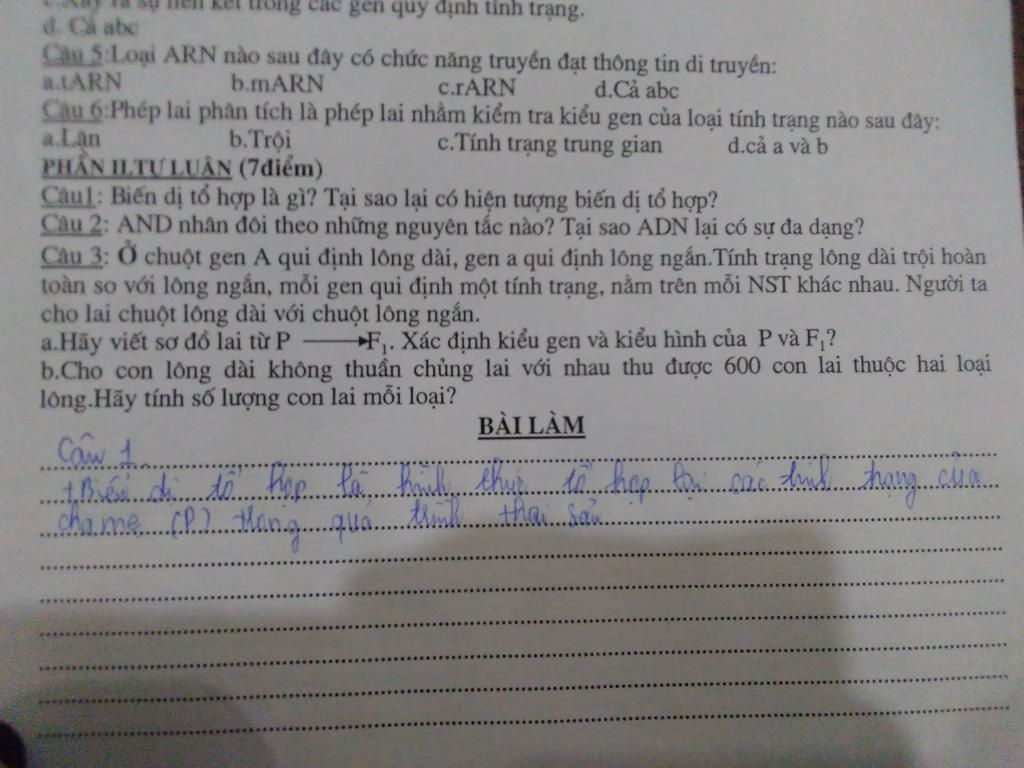 c. Xảy ra sự liên kết trong các gen quy định tính trạng.
d. Cả abc
Câu 5:Loại ARN nào sau đây có chức năng truyền đạt thông tin di truyền:
a.tARN b.mARN c.rARN d.Cả abc
Câu 6:Phép lai phân tích là phép lai nhằm kiểm tra kiểu gen của loại tính trạng nào sau đây:
a.Lặn b.Trội c.Tính trạng trung gian d.cả a và b
PHẦN II.TỰ LUẬN (7điểm)
Câu1: Biến dị tổ hợp là gì? Tại sao lại có hiện tượng biến dị tổ hợp?
Câu 2: AND nhân đôi theo những nguyên tắc nào? Tại sao ADN lại có sự đa dạng?
Câu 3: Ở chuột gen A qui định lông dài, gen a qui định lông ngắn.Tính trạng lông dài trội hoàn
toàn so với lông ngắn, mỗi gen qui định một tính trạng, nằm trên mỗi NST khác nhau. Người ta
cho lai chuột lông dài với chuột lông ngắn.
a.Hãy viết sơ đồ lai từ P ⟶F₁. Xác định kiểu gen và kiểu hình của P và F₁?
b.Cho con lông dài không thuần chủng lai với nhau thu được 600 con lai thuộc hai loại
lông.Hãy tính số lượng con lai mỗi loại?
BÀI LÀM
Câu 1
+Biến dị tổ hợp là hình thức tổ hợp lại các tính trạng của
cha mẹ (P) trong quá trình thai sản